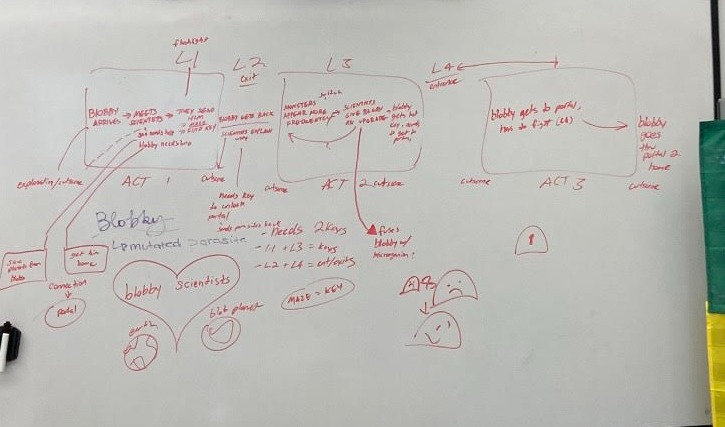 flashlight
L1
L2
exit
L3
L4
entrance
BLOBBY
ARRIVES
MEETS
SCIENTISTS
THEY SEND
HIM
MAZE
FIND KEY
blobby needs help
BLOBBY GETS BACK
SCIENTISTS EXPLAIN
MONSTERS
APPEAR MORE
FREQUENTLY
SCIENTISTS
GIVE BLOBBY
AN UPGRADE
blobby
gets last
key, needs
to get to
portal
blobby gets to portal,
has to fight (L4)
blobby
goes
thru
portal 2
home
exploration/cutscene
ACT 1
cutscene
cutscene
ACT 2
cutscene
cutscene
ACT 3
cutscene
needs key
to unlock
portal
Blobby
mutated parasite
- needs 2 keys
- L1 + L3 = keys
- L2 + L4 = ent/exits
MAZE = KEY
fuses
blobby w/
get him
home
connection
portal
blobby scientists
earth
blob planet